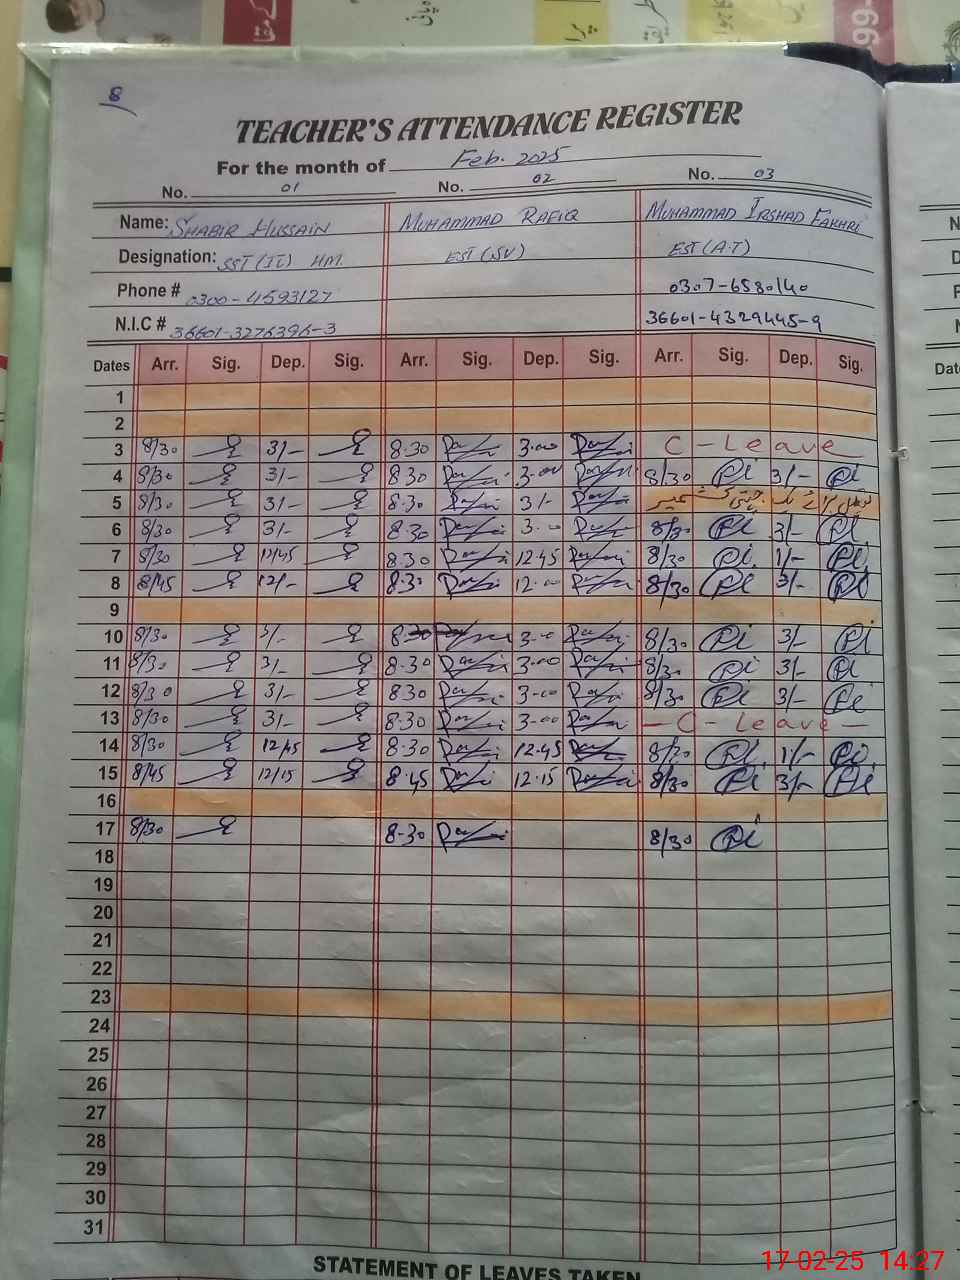 8
TEACHER'S ATTENDANCE REGISTER
For the month of Feb. 2025
No. 01 No. 02 No. 03
Name: SHABIR HUSSAIN MUHAMMAD RAFIQ MUHAMMAD IRSHAD FAKHRI
Designation: SST (IT) HM. EST (SV) EST (A.T)
Phone # 0300-4593127 0307-6580140
N.I.C # 36601-3276396-3 36601-4329445-9
Dates Arr. Sig. Dep. Sig. Arr. Sig. Dep. Sig. Arr. Sig. Dep. Sig.
1
2
3 8/30 3/- 8.30 3.00 C - Leave
4 8/30 3/- 8.30 3.00 8/30 3/-
5 8/30 3/- 8.30 3/-
6 8/30 3/- 8.30 3.00 8/30 3/-
7 8/30 12/45 8.30 12.45 8/30 1/-
8 8/45 12/- 8.30 12.00 8/30 3/-
9
10 8/30 3/- 8.30 3.00 8/30 3/-
11 8/30 3/- 8.30 3.00 8/30 3/-
12 8/30 3/- 8.30 3.00 8/30 3/-
13 8/30 3/- 8.30 3.00 - C - Leave -
14 8/30 12/45 8.30 12.45 8/30 1/-
15 8/45 12/15 8.45 12.15 8/30 3/-
16
17 8/30 8.30 8/30
18
19
20
21
22
23
24
25
26
27
28
29
30
31
STATEMENT OF LEAVES TAKEN
17-02-25 14:27